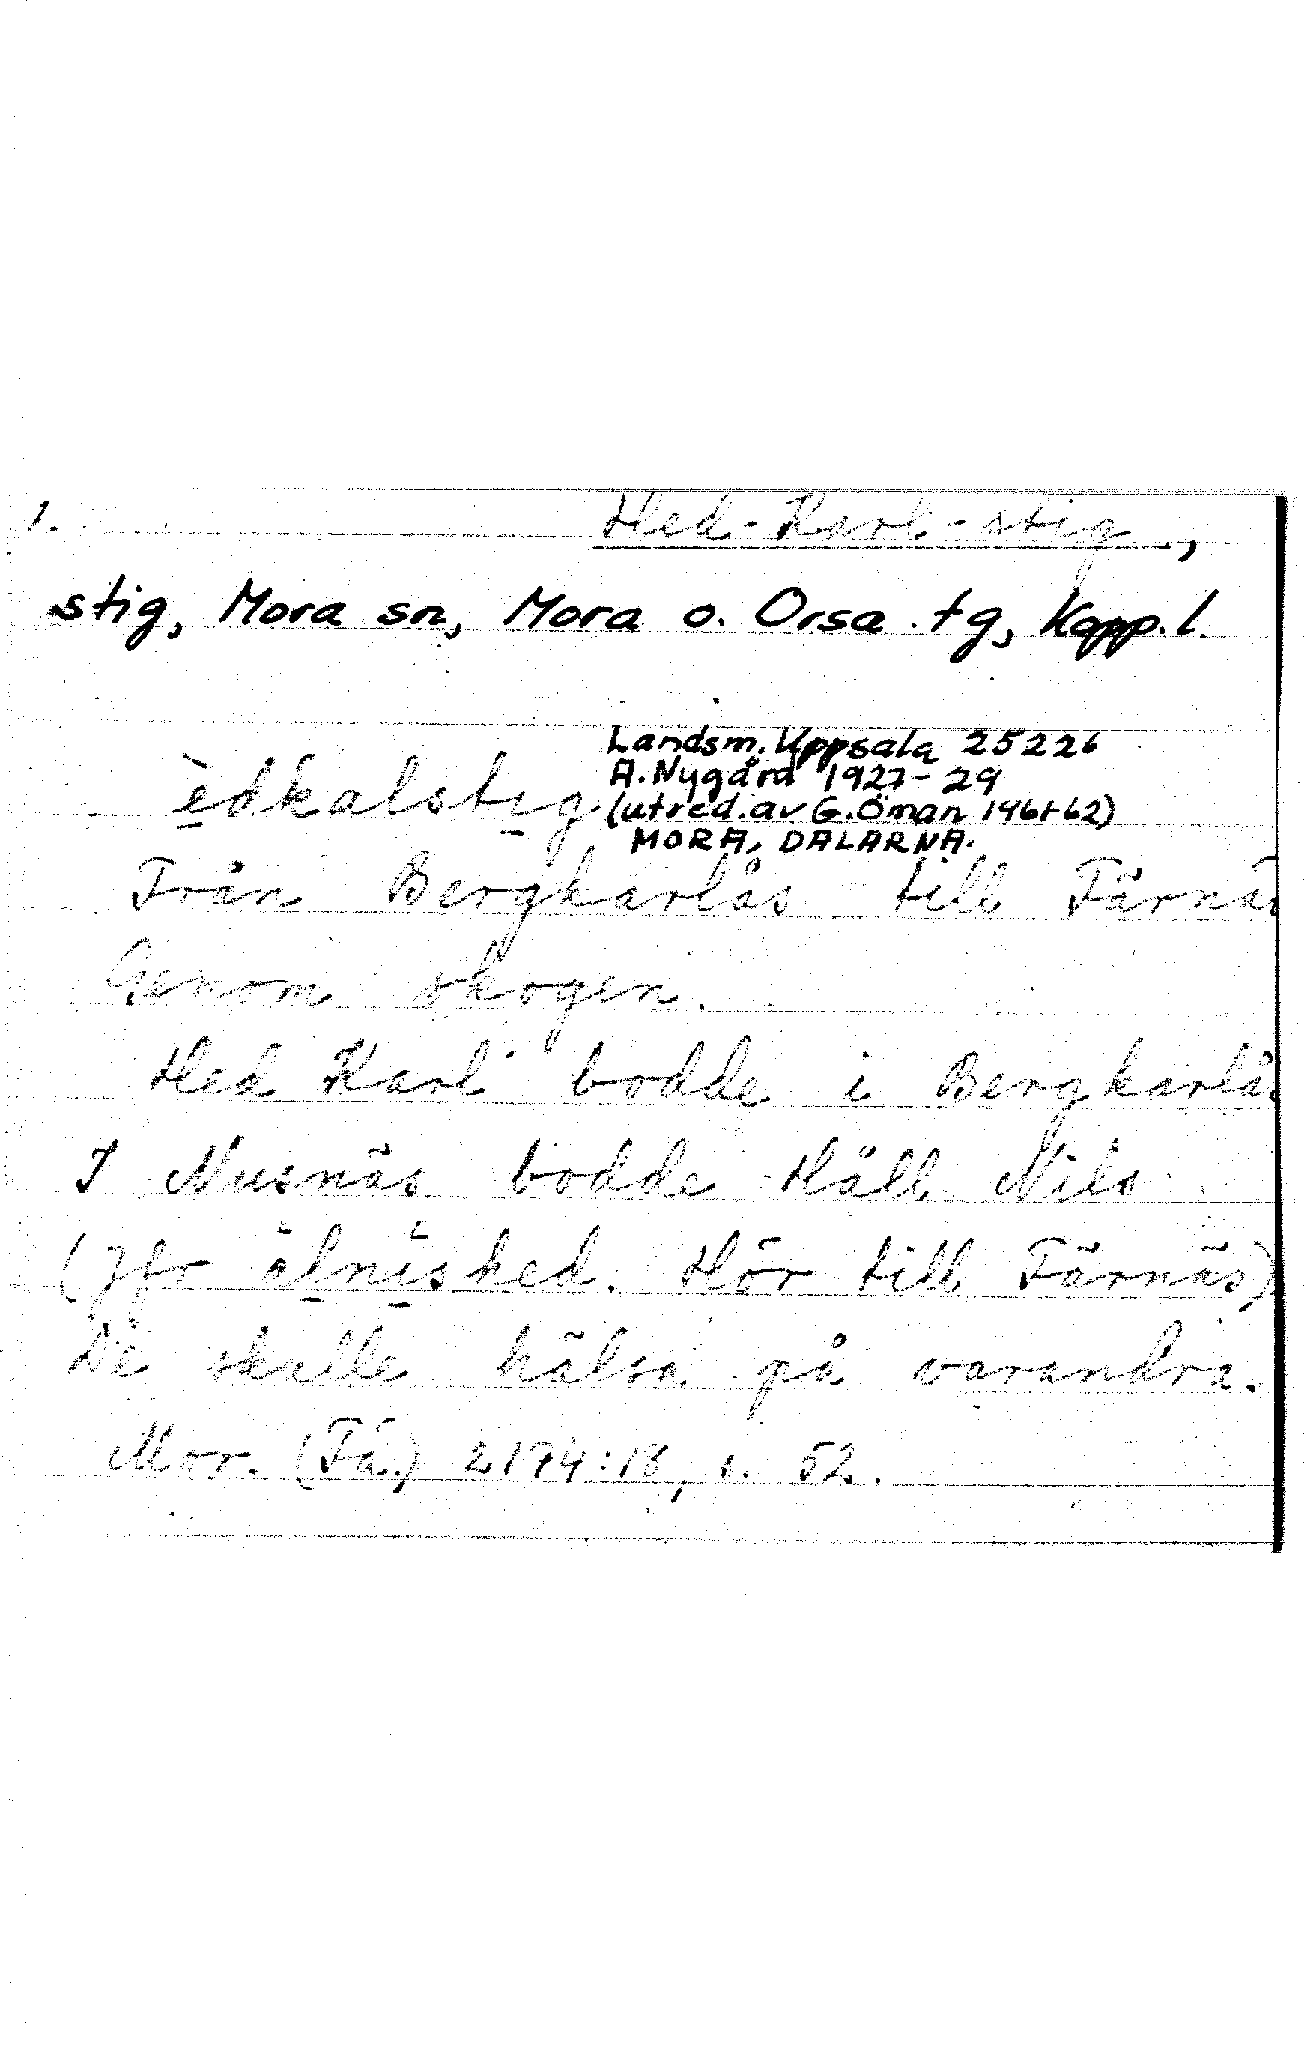 1. Hed-Karl-stig,
stig, Mora sn, Mora o. Orsa tg, Kopp. l.
Landsm. Uppsala 25226
A. Nygård 1927-29
(utred. av G. Öman 1961-62)
MORA, DALARNA.
èdkalstig
Från Bergkarlås till Färnäs
Genom skogen.
Hed Karl bodde i Bergkarlås
I Nusnäs bodde Häll Nils
(Jfr älnäshed. Hör till Färnäs)
De skulle hälsa på varandra.
Mor. (Fä.) 2194:18, s. 52.